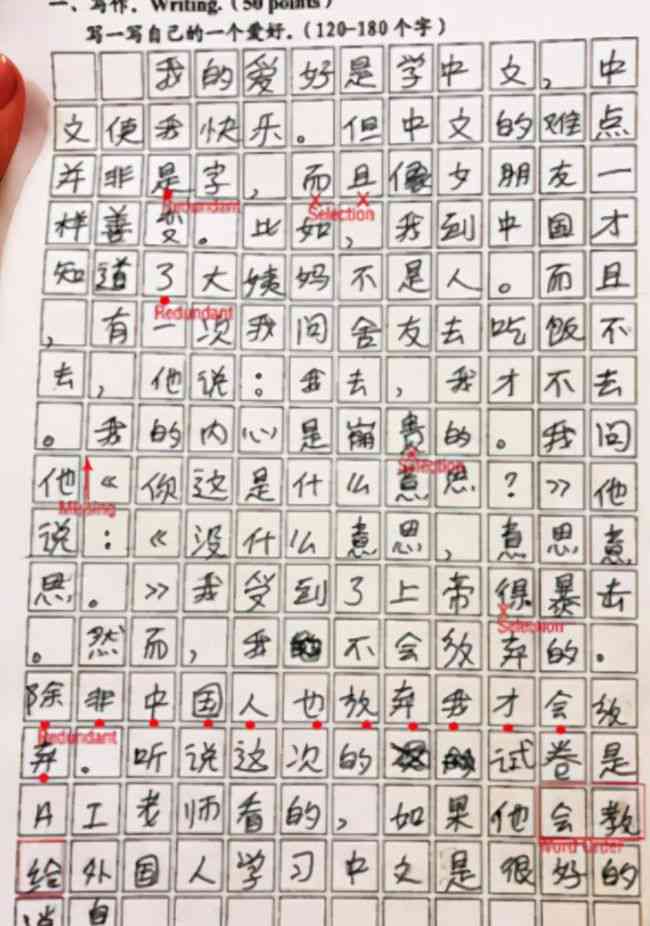 一、写作. Writing. (50 points)
写一写自己的一个爱好. (120-180 个字)
我的爱好是学中文，中
文使我快乐。但中文的难点
并非是字，而且像女朋友一
Redundant
Selection
样善变。比如，我到中国才
知道了大姨妈不是人。而且
Redundant
，有一次我问舍友去吃饭不
去，他说：我去，我才不去
。我的内心是崩的。我问
Selection
他《你这是什么意思？》他
Missing
说：《没什么意思，意思意
思。》我受到了上帝暴击
Selection
。然而，我不会放弃的。
除非中国人也放弃我才会放
Redundant
弃。听说这次的试卷是
AI老师看的，如果他会教
Word Order
给外国人学习中文是很好的